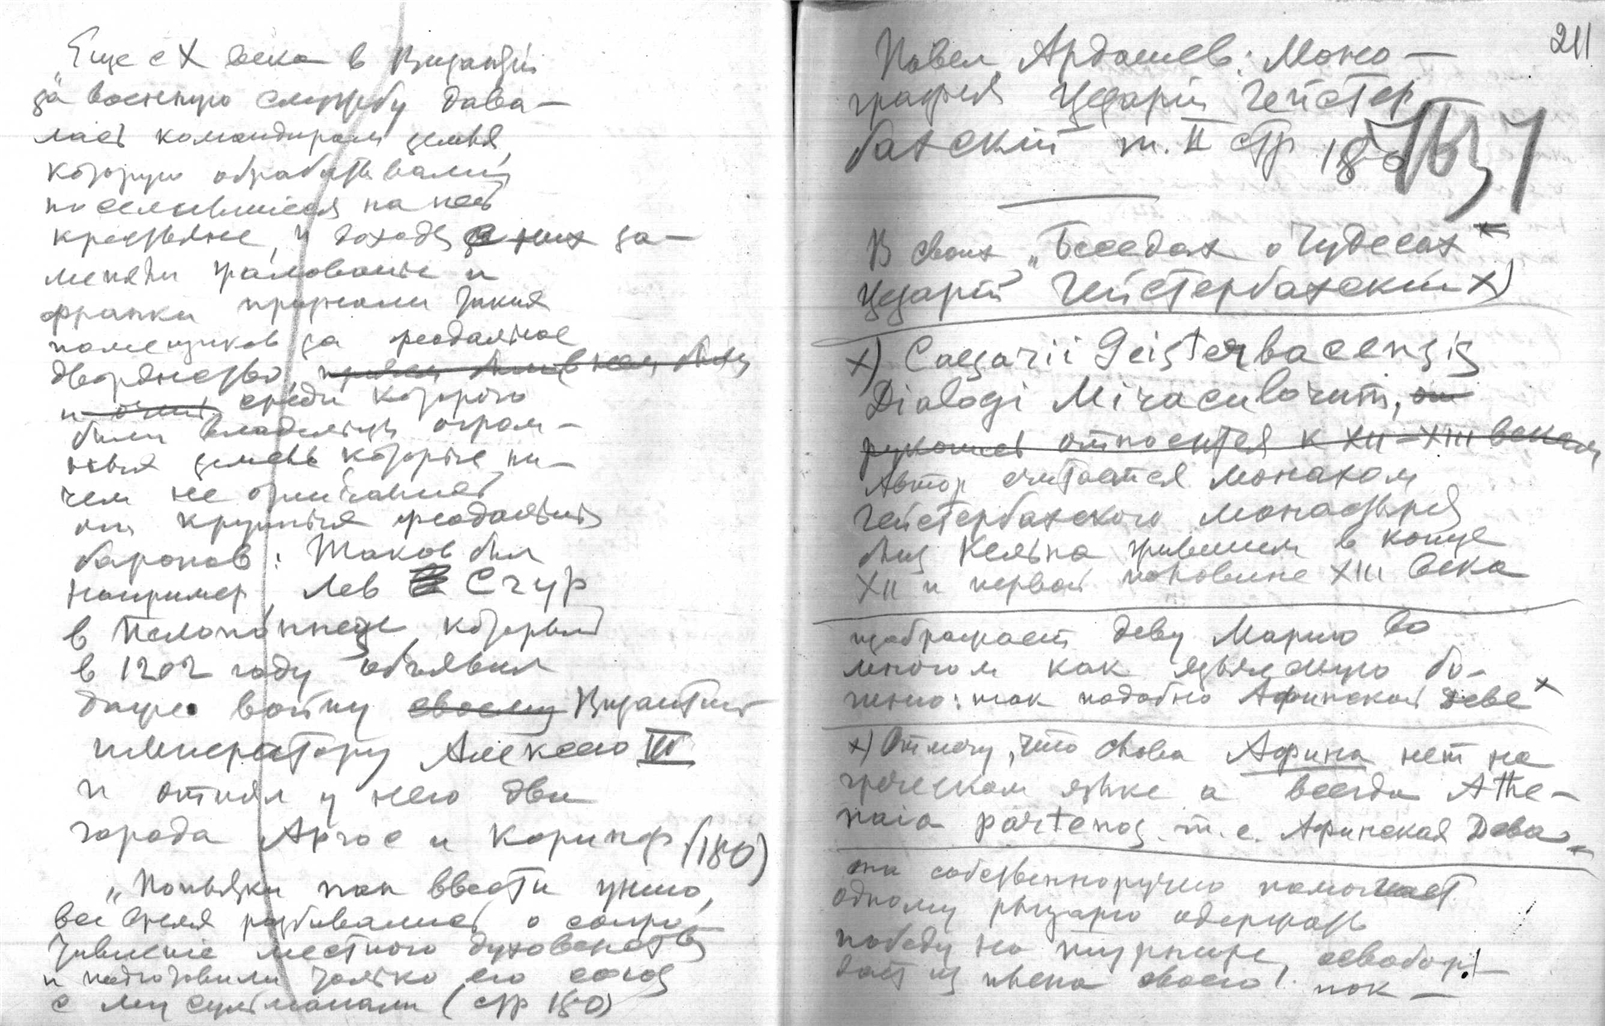 Еще с X века в Византіи
за военную службу дава-
лась командирам земля,
которую обрабатывали
поселившіеся на ней
крестьяне, и доходы с них за-
меняли жалованье и
франки признали таких
помещиков за феодальное
дворянство,
среди которого
были владельцы огром-
ных земель которые ни-
чем не отличались
от крупных феодальных
баронов: Таков был
например, Лев Сгур
в Пелопоннезе, который
в 1202 году объявил
даже войну своему Византійск
императору Алексею III
и отнял у него два
города Аргос и Коринф (180)
„Попытки пап ввести унию,
все время разбивались о сопро-
тивленіе местного духовенства
и подготовили только его союз
с мусульманами (стр 180)
211
Павел Ардашев: Моно-
графія Цезарій Гейстер
бахскій т. II стр 180
В своих „Беседах о Чудесах"
Цезарій Гейстербахскій x)
x) Caesarii Geisterbacensis
Dialogi Miraculorum,
рукопись относится к XII-XIII векам
Автор считается монахом
Гейстербахского монастыря
близ Кельна жившем в конце
XII и первой половине XIII века
изображает деву Марию во
многом как языческую бо-
гиню: так подобно Афинской Деве x
x) Отмечу, что слова Афина нет на
греческом языке а всегда Athe-
naia partenos т.е. Афинская Дева
она собственноручно помогает
одному рыцарю одержать
победу на турнире, освобож-
дает из плена своего